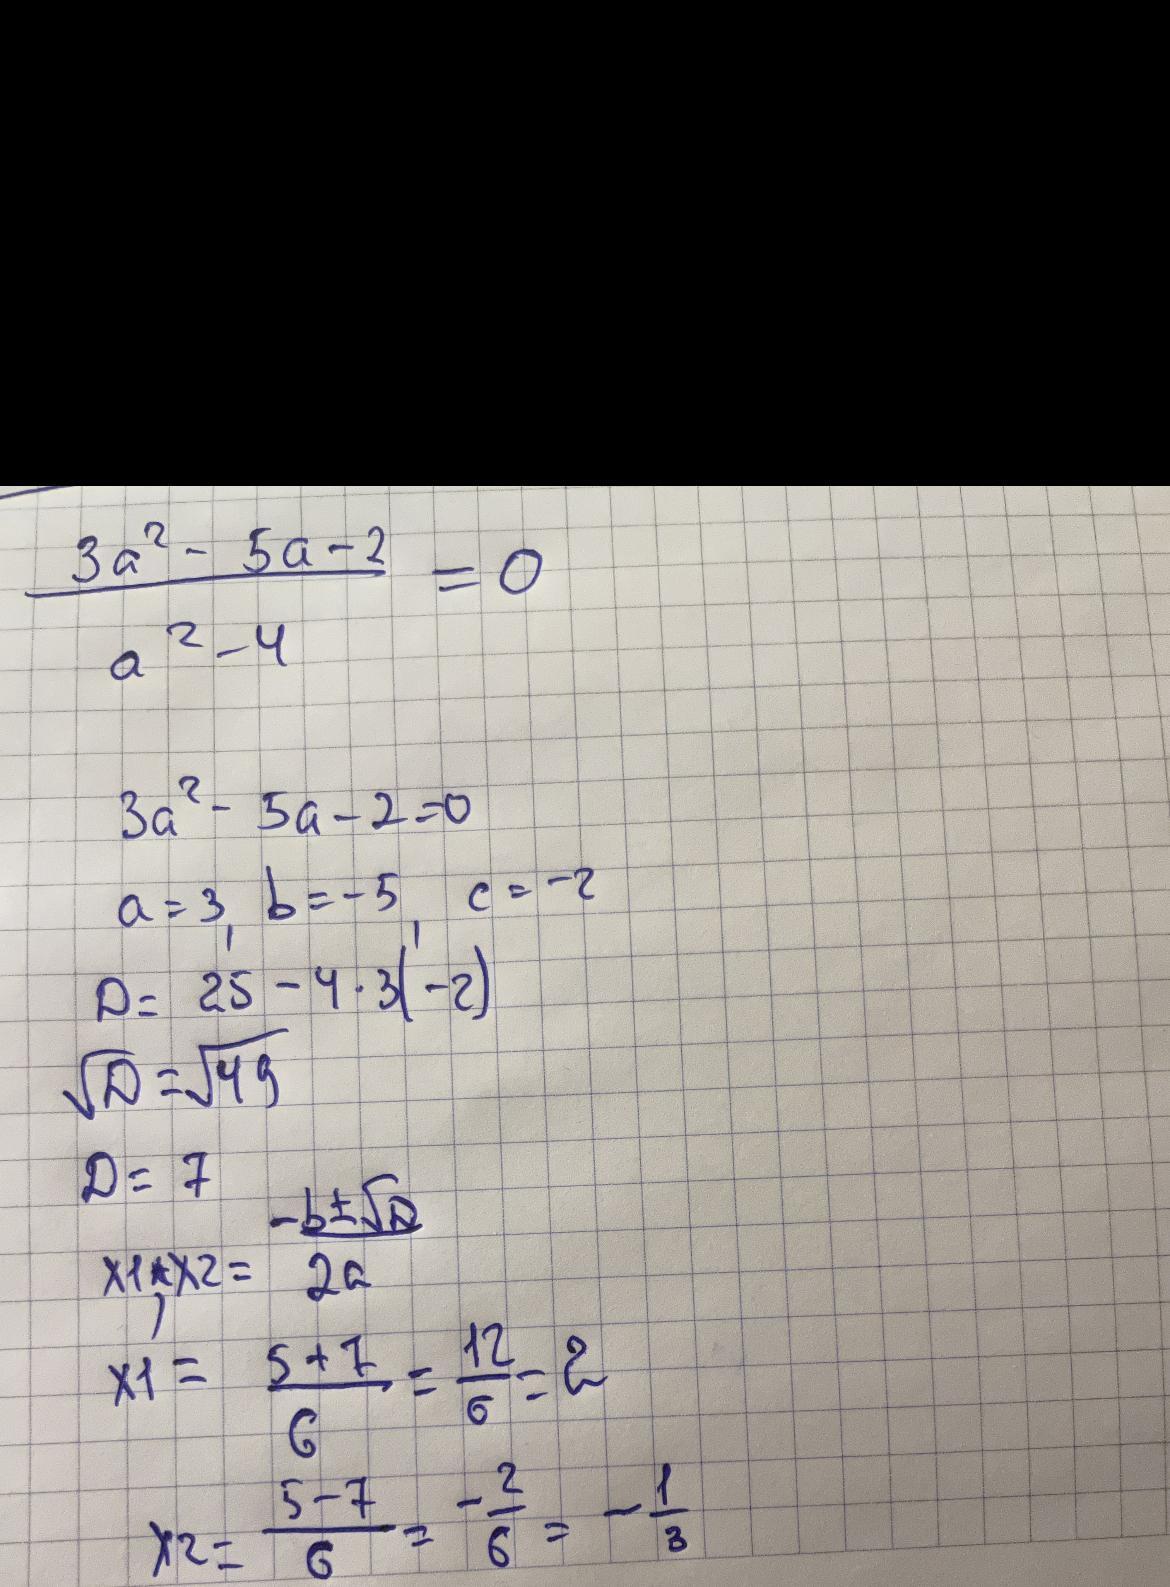 3a² - 5a - 2
/ a² - 4 = 0
3a² - 5a - 2 = 0
a = 3, b = -5, c = -2
D = 25 - 4 · 3(-2)
√D = √49
D = 7
x1, x2 = -b ± √D / 2a
x1 = 5 + 7 / 6 = 12 / 6 = 2
x2 = 5 - 7 / 6 = - 2 / 6 = - 1 / 3